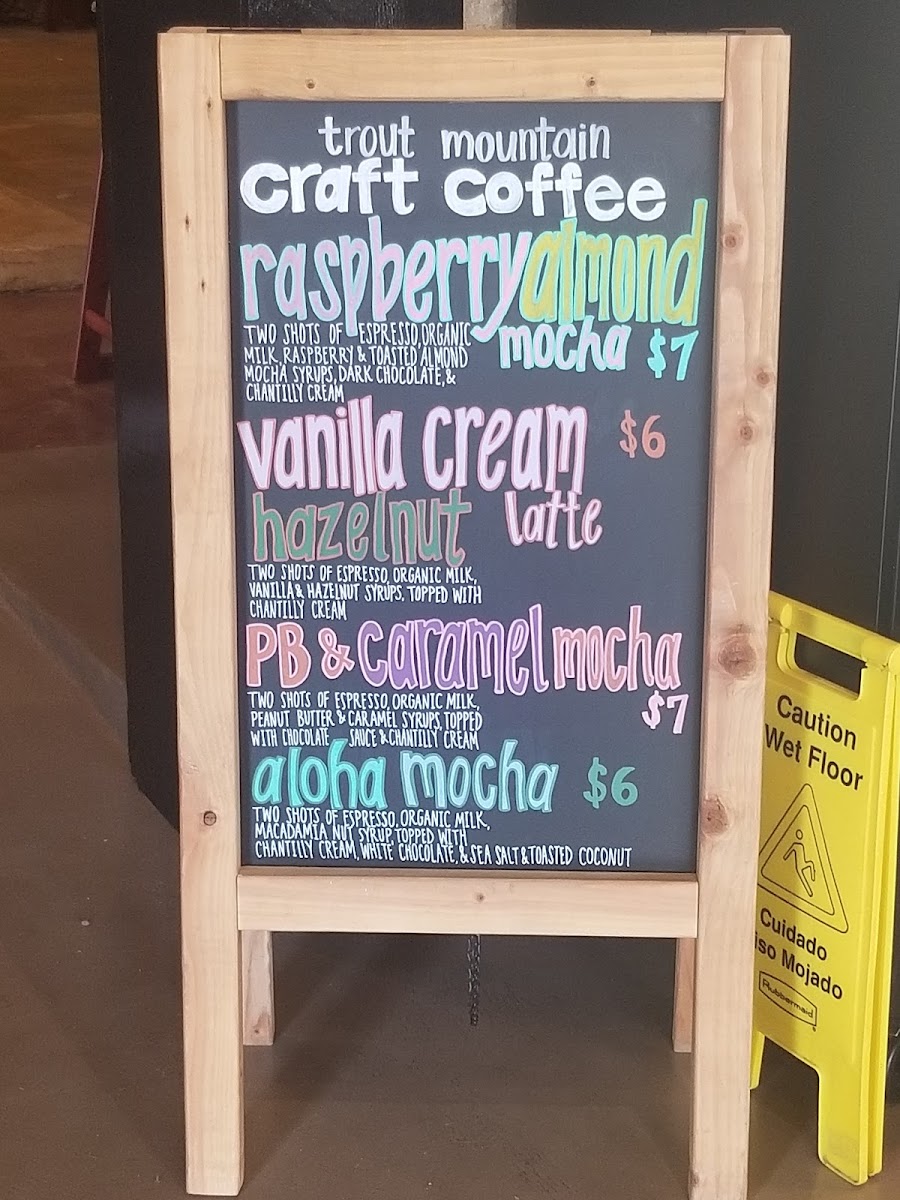 trout mountain
craft coffee
raspberry almond
mocha $7
TWO SHOTS OF ESPRESSO, ORGANIC
MILK, RASPBERRY & TOASTED ALMOND
MOCHA SYRUPS, DARK CHOCOLATE, &
CHANTILLY CREAM
vanilla cream $6
hazelnut latte
TWO SHOTS OF ESPRESSO, ORGANIC MILK,
VANILLA & HAZELNUT SYRUPS, TOPPED WITH
CHANTILLY CREAM
PB & caramel mocha
$7
TWO SHOTS OF ESPRESSO, ORGANIC MILK,
PEANUT BUTTER & CARAMEL SYRUPS, TOPPED
WITH CHOCOLATE SAUCE & CHANTILLY CREAM
aloha mocha $6
TWO SHOTS OF ESPRESSO, ORGANIC MILK,
MACADAMIA NUT SYRUP, TOPPED WITH
CHANTILLY CREAM, WHITE CHOCOLATE, & SEA SALT & TOASTED COCONUT
Caution
Wet Floor
Cuidado
iso Mojado
Rubbermaid